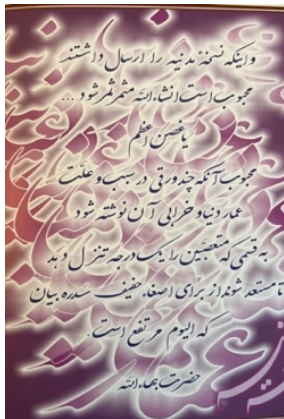 و اینکه نسخهٔ مدنیه را ارسال داشتند
محبوب است انشاءالله مثمر ثمر شود ...
یا غصن اعظم
محبوب آنکه چند ورقی در سبب و علّت
عمار دنیا و خرابی آن نوشته شود
به قسمی که متعصّبین را یک درجه تنزل دهد
تا مستعد شوند از برای اصغاء حفیف سدره بیان
که الیوم مرتفع است.
حضرت بهاءالله